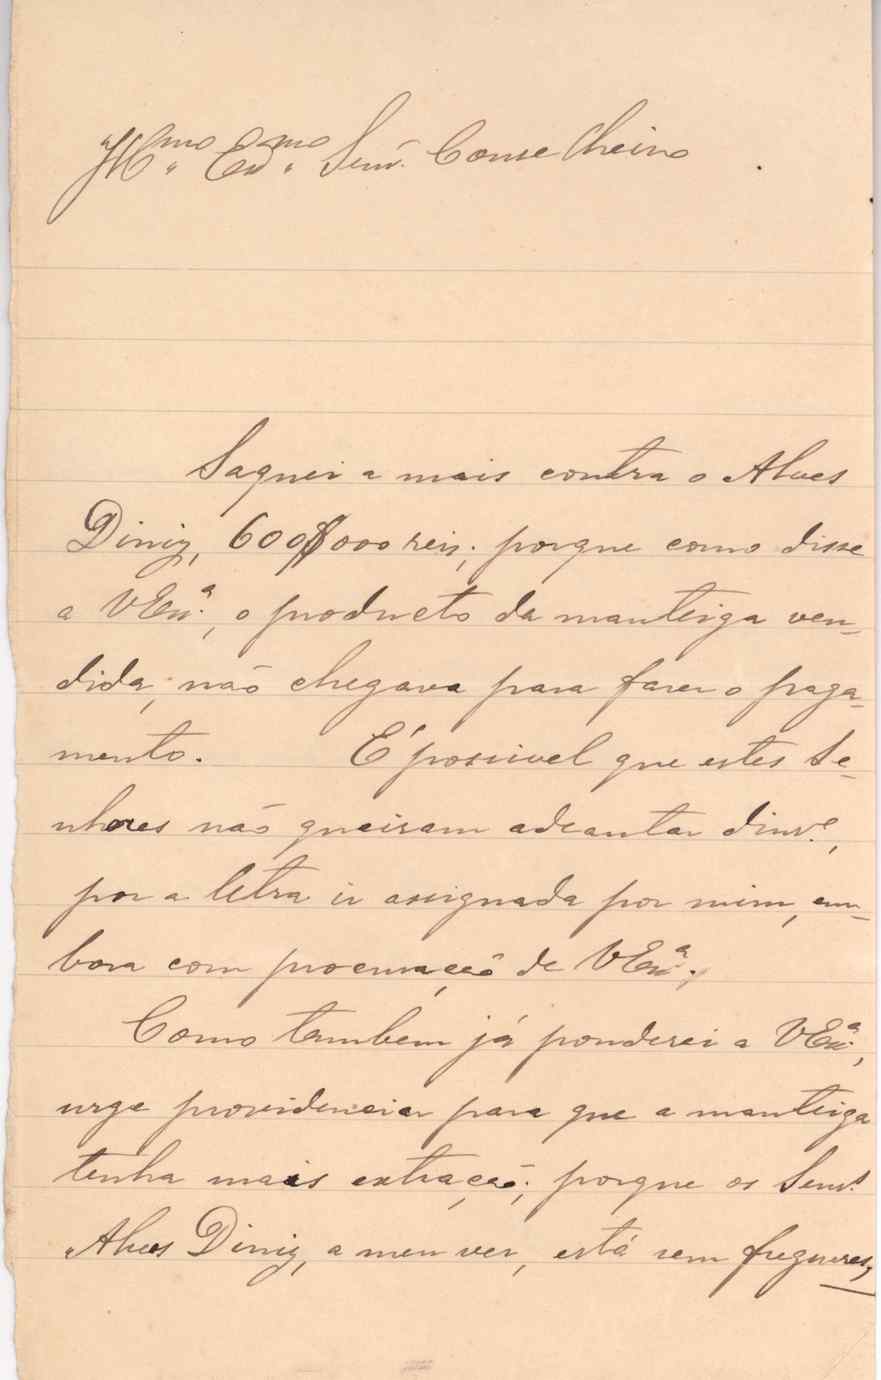 Illmo. Exmo. Senr. Conselheiro
Saquei a mais contra o Alves
Diniz, 600$000 reis; porque como disse
a VExa., o producto da manteiga ven-
dida, não chegava para fazer o paga-
mento. É possivel que estes Se-
nhores não queiram adeantar dinro.,
por a letra ir assignada por mim, em-
bora com procuração de VExa.
Como tambem já ponderei a VExa.,
urge providenciar para que a manteiga
tenha mais extração; porque os Senrs.
Alves Diniz, a meu ver, está sem freguezes,